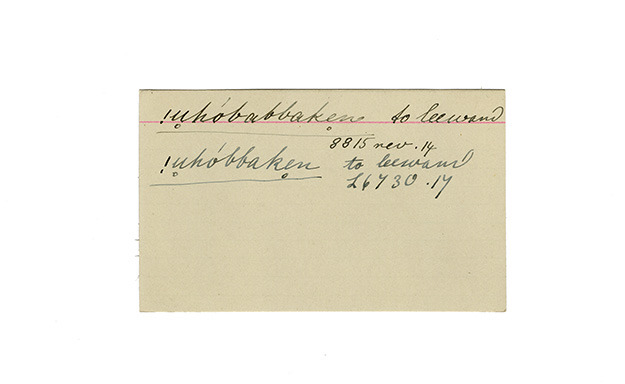 !ụhóbabbaken̥ to leeward
8815 rev. 14
!ụhóbbaken̥ to leeward
L6730.17